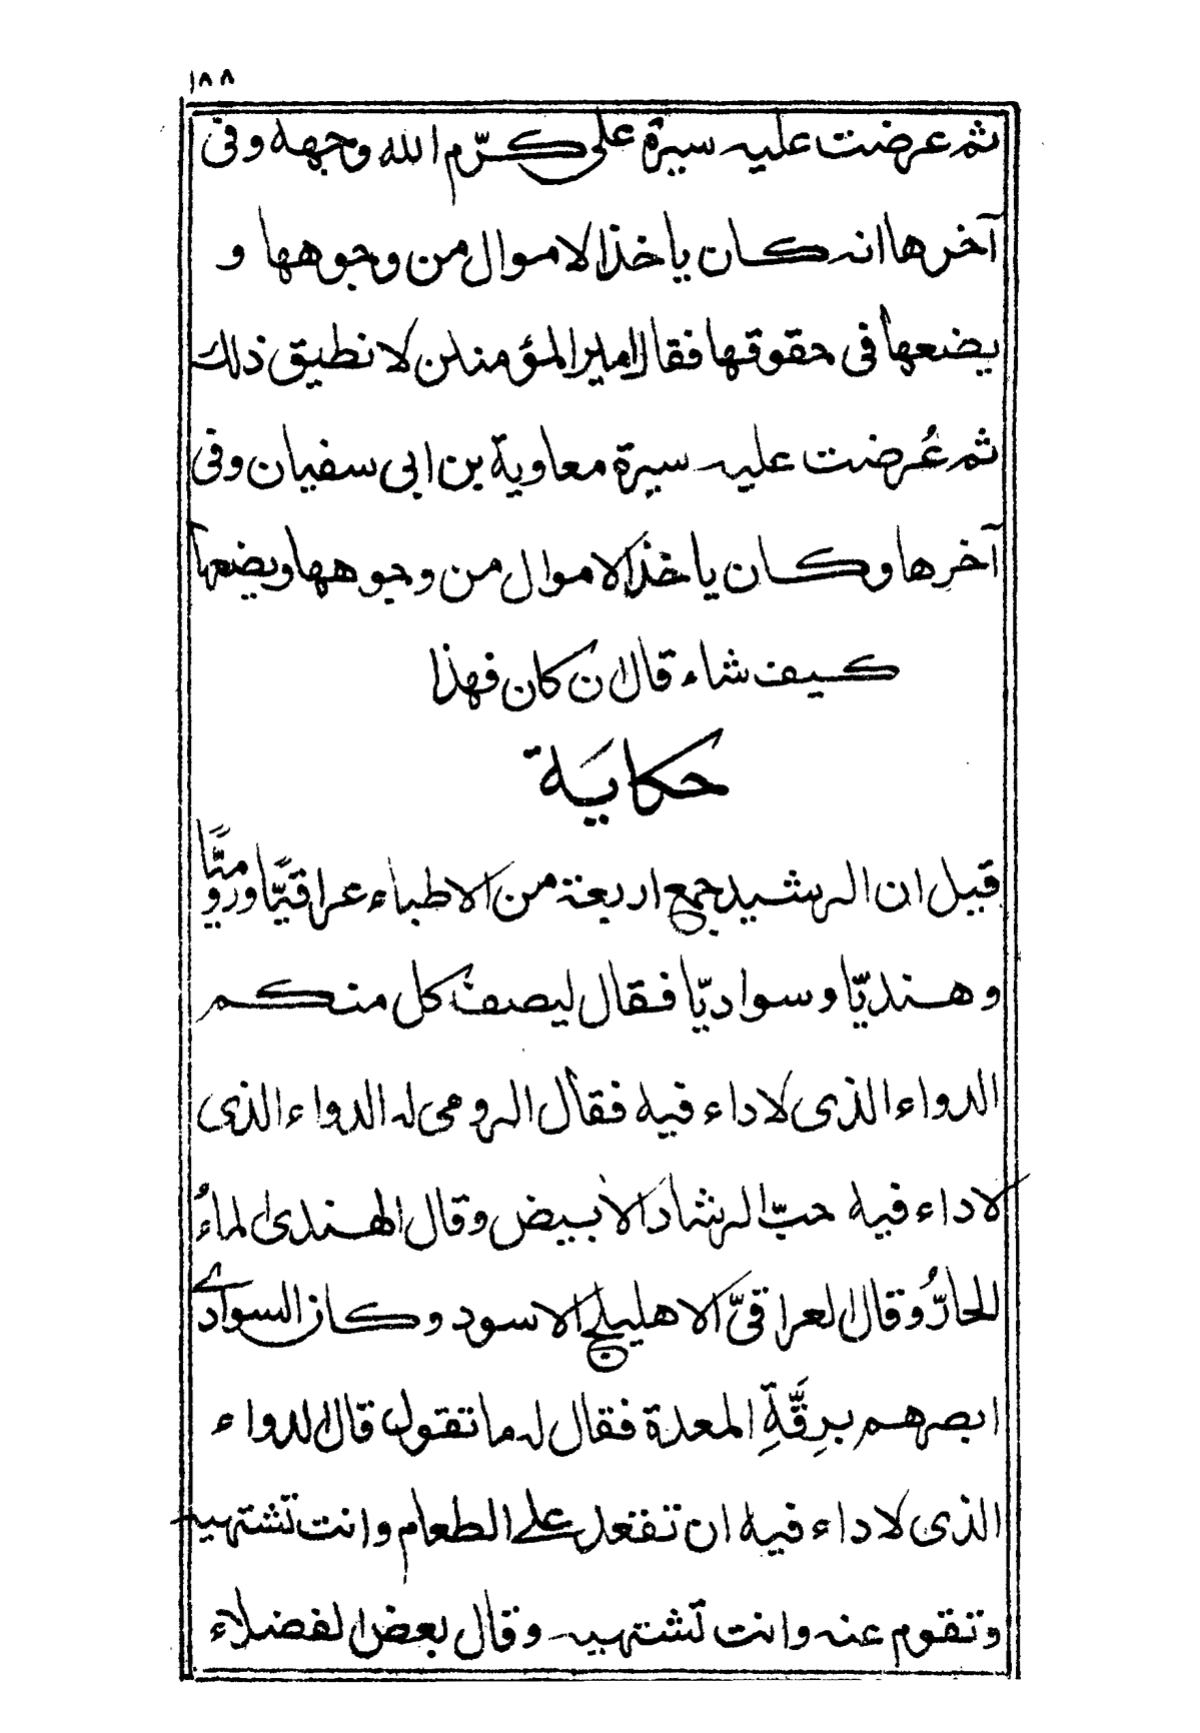 ١٨٨
ثم عرضت عليه سيرة على كرّم الله وجهه وفى
آخرها انه كان ياخذ الاموال من وجوهها و
يضعها فى حقوقها فقال امير المؤمنين لا نطيق ذلك
ثم عُرضت عليه سيرة معاوية بن ابى سفيان وفى
آخرها وكان ياخذ الاموال من وجوهها ويضعها
كيف شاء قال ان كان فهذا
حكاية
قيل ان الرشيد جمع اربعة من الاطباء عراقيًّا وروميًّا
وهنديّا وسواديّا فقال ليصف كل منكم
الدواء الذى لا داء فيه فقال الرومى له الدواء الذى
لا داء فيه حبّ الرشاد الأبيض وقال الهندى الماءُ
الحارُّ وقال العراقىّ الاهليلج الاسود وكان السوادى
ابصرهم برِقَّةِ المعدة فقال له ما تقول قال الدواء
الذى لا داء فيه ان تقعد على الطعام وانت تشتهيه
وتقوم عنه وانت تشتهيه وقال بعض الفضلاء